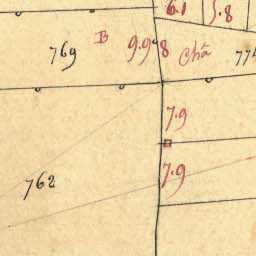 6.1 5.8
769 B 9.98 Chā 774
7.9
7.9
762